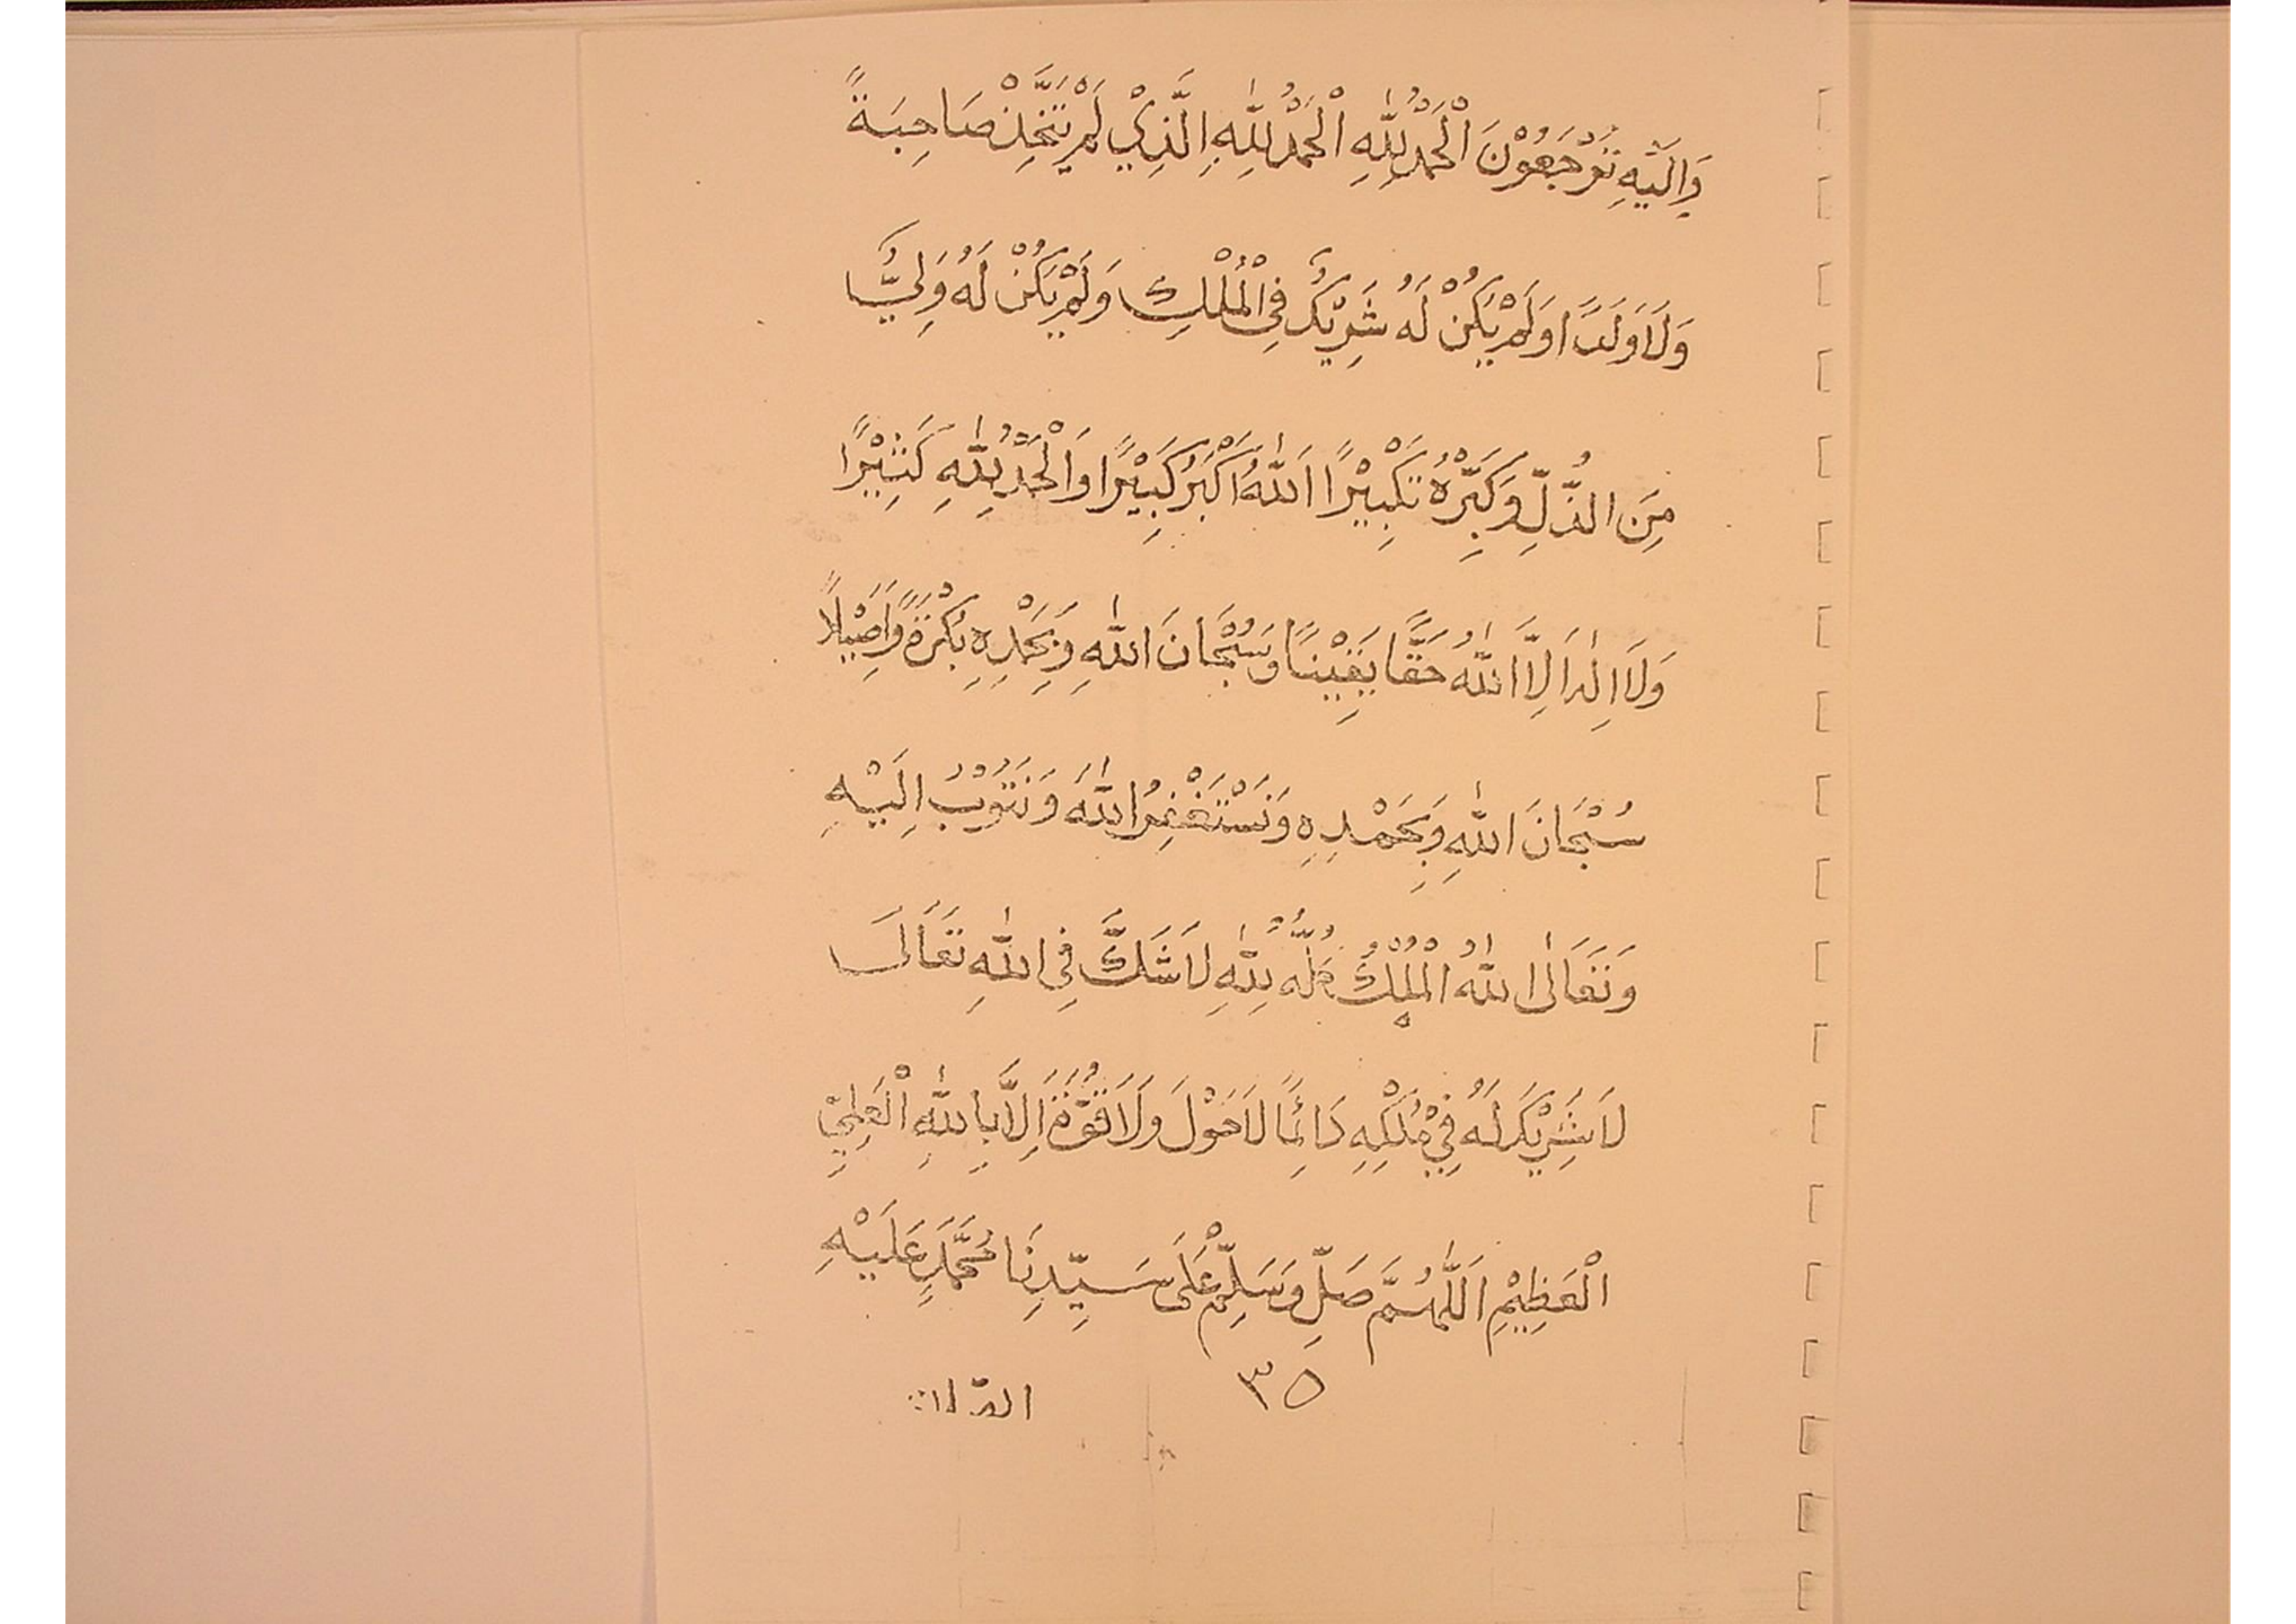 وَاِلَيْهِ تُرْجَعُوْنَ اَلْحَمْدُ لِلّٰهِ اَلْحَمْدُ لِلّٰهِ الَّذِيْ لَمْ يَتَّخِذْ صَاحِبَةً
وَلَا وَلَدًا وَلَمْ يَكُنْ لَهُ شَرِيْكٌ فِى الْمُلْكِ وَلَمْ يَكُنْ لَهُ وَلِيٌّ
مِنَ الذُّلِّ وَكَبِّرْهُ تَكْبِيْرًا اَللّٰهُ اَكْبَرُ كَبِيْرًا وَالْحَمْدُ لِلّٰهِ كَثِيْرًا
وَلَا اِلٰهَ اِلَّا اللّٰهُ حَقًّا يَقِيْنًا وَسُبْحَانَ اللّٰهِ وَبِحَمْدِهِ بُكْرَةً وَاَصِيْلًا
سُبْحَانَ اللّٰهِ وَبِحَمْدِهِ وَنَسْتَغْفِرُ اللّٰهَ وَنَتُوْبُ اِلَيْهِ
وَتَعَالَى اللّٰهُ الْمُلْكُ كُلُّهُ لِلّٰهِ لَا شَكَّ فِى اللّٰهِ تَعَالَى
لَا شَرِيْكَ لَهُ فِيْ مُلْكِهِ دَائِمًا لَا حَوْلَ وَلَا قُوَّةَ اِلَّا بِاللّٰهِ الْعَلِيِّ
الْعَظِيْمِ اَللّٰهُمَّ صَلِّ وَسَلِّمْ عَلَى سَيِّدِنَا مُحَمَّدٍ عَلَيْهِ
٣٥